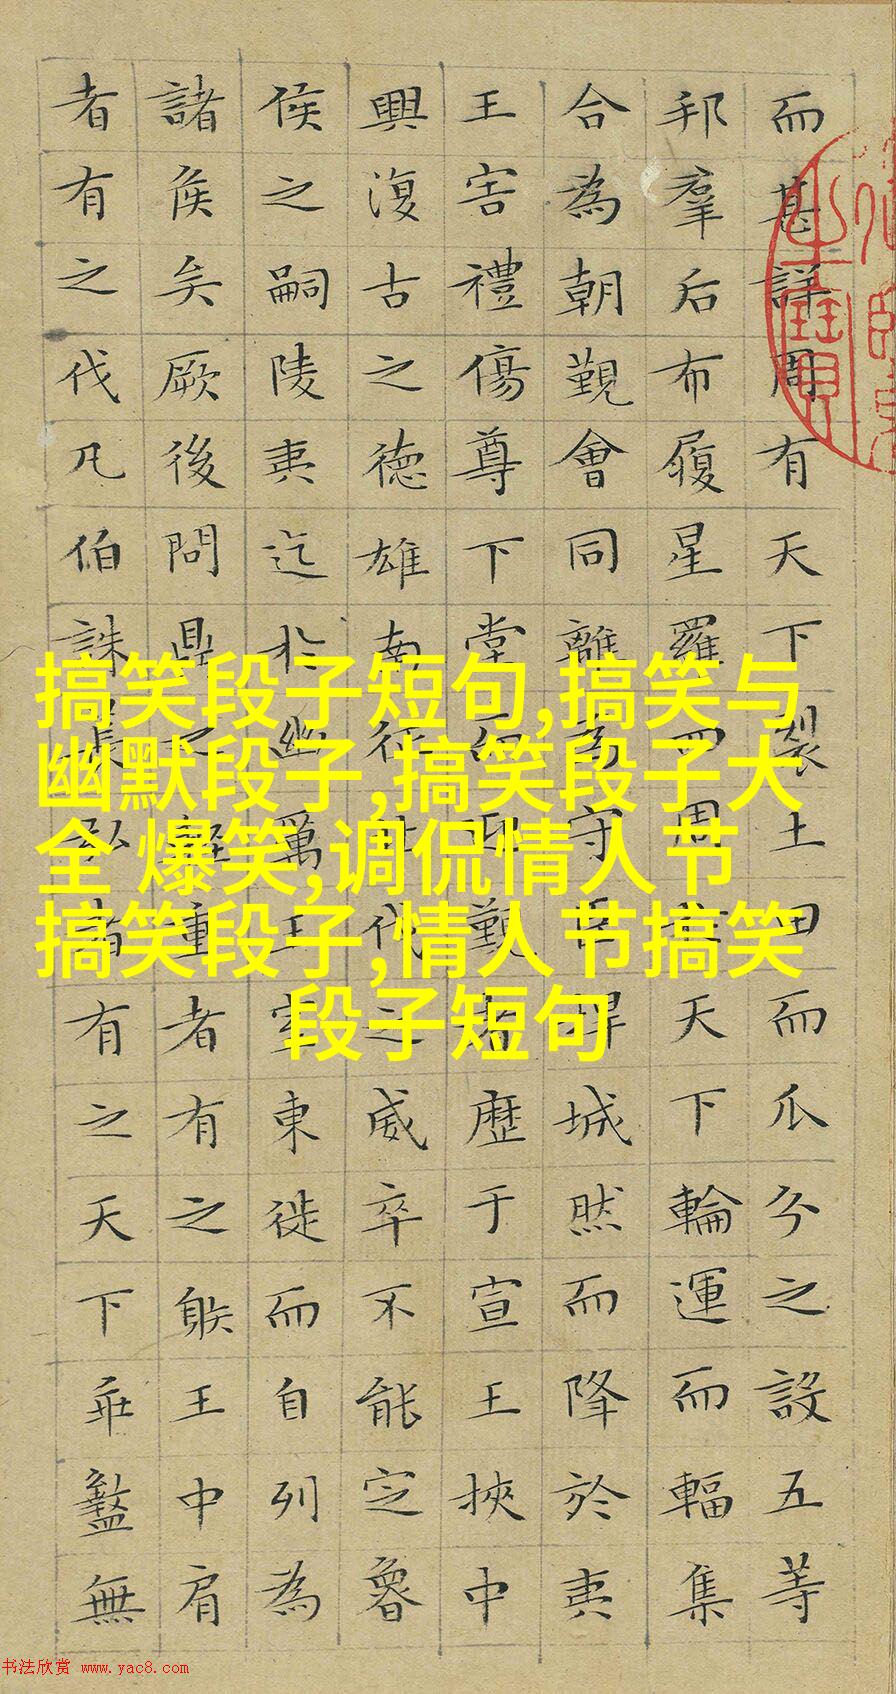 而甚詳周有天下裂土田而瓜分之設五等
邦羣后布履星羅四周於天下輪運而輻集
合為朝覲會同離為守臣扞城然而降於夷
王害禮傷尊下堂而迎覲者歷于宣王挾中
興復古之德雄南征北伐之威卒不能定魯
侯之嗣陵夷迄於幽厲王室東徙而自列為
諸侯矣厥後問鼎之輕重者有之䠶王中肩
者有之伐凡伯誅萇弘者有之天下乖盭無
搞笑段子短句,搞笑与
幽默段子,搞笑段子大
全 爆笑,调侃情人节
搞笑段子,情人节搞笑
段子短句
书法欣赏 www.yac8.com